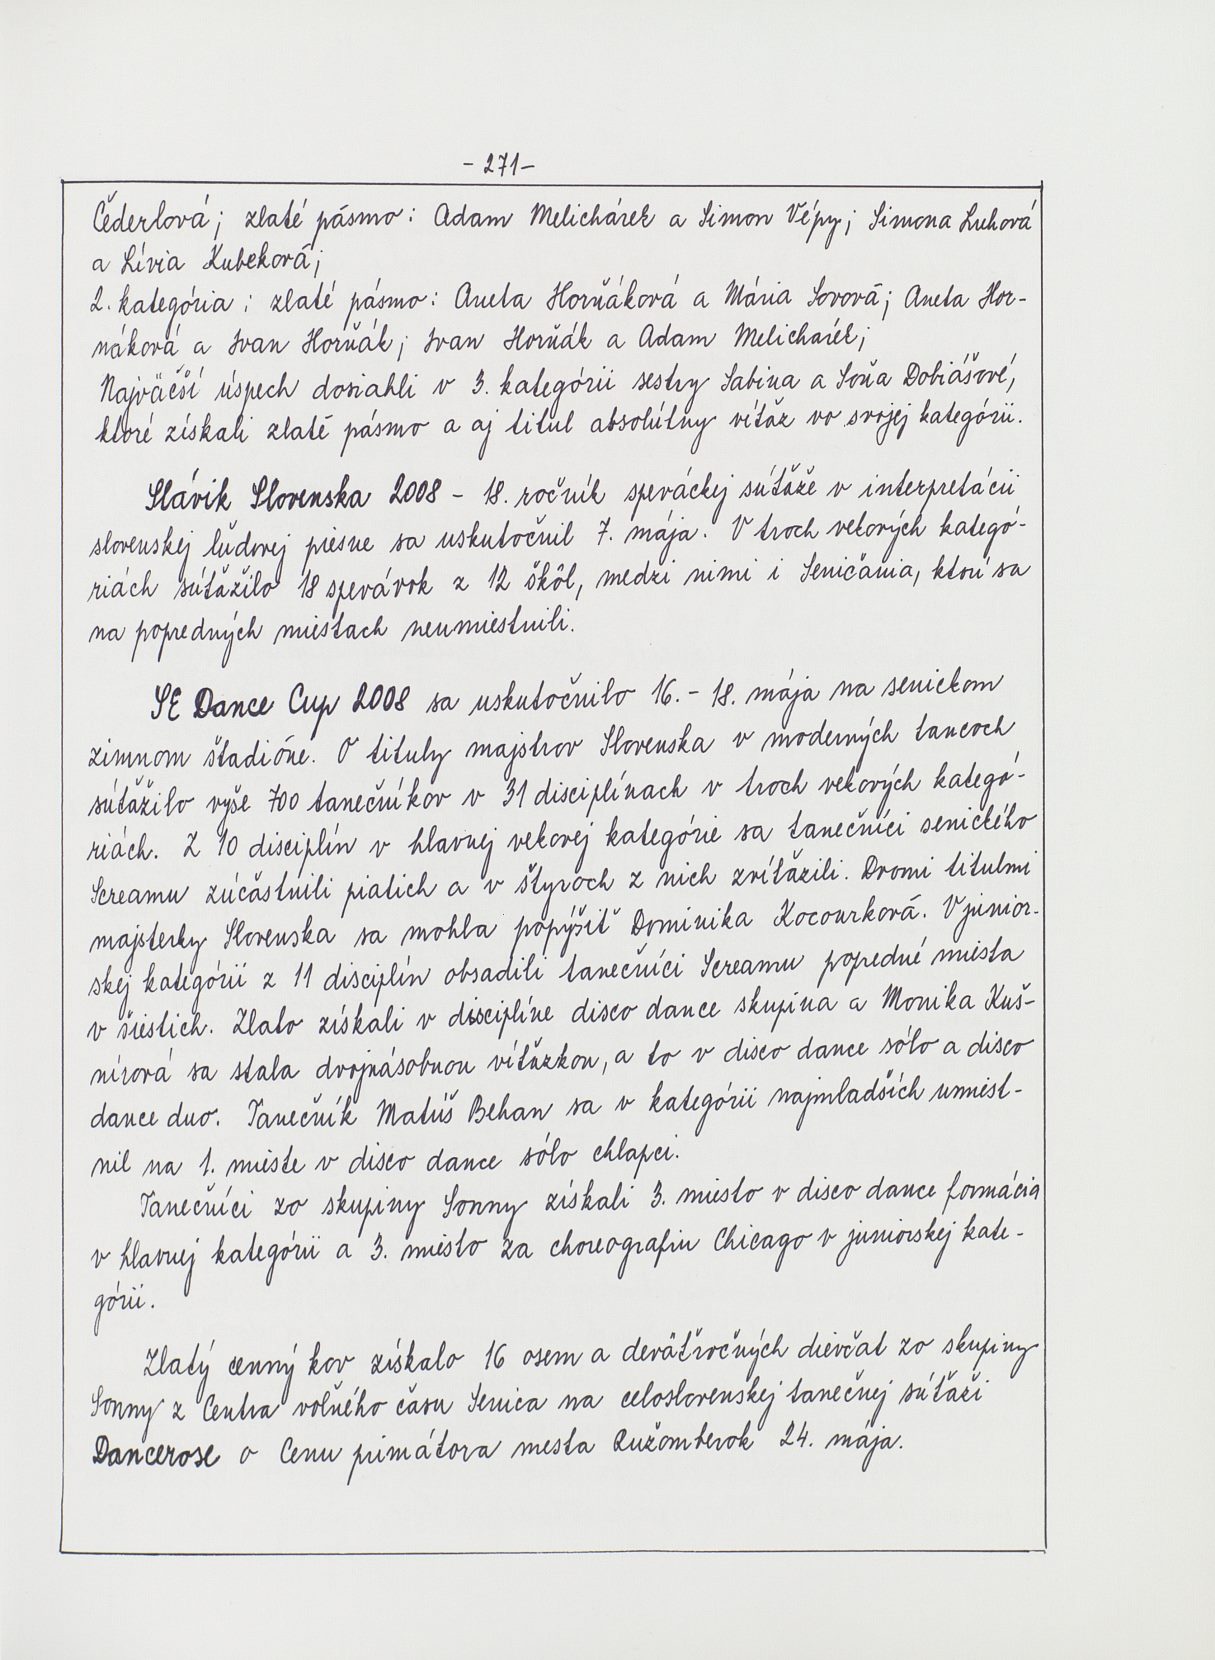 - 271 -
Čederlová; zlaté pásmo: Adam Melichárek a Simon Vépy; Simona Luhová
a Lívia Kubeková;
2. kategória: zlaté pásmo: Aneta Horňáková a Mária Sovová; Aneta Hor-
náková a Ivan Horňák; Ivan Horňák a Adam Melichárek;
Najväčší úspech dosiahli v 3. kategórii sestry Sabina a Soňa Dobiášové,
ktoré získali zlaté pásmo a aj titul absolútny víťaz vo svojej kategórii.
Slávik Slovenska 2008 - 18. ročník speváckej súťaže v interpretácii
slovenskej ľudovej piesne sa uskutočnil 7. mája. V troch vekových kategó-
riách súťažilo 18 spevávok z 12 škôl, medzi nimi i Seničania, ktorí sa
na popredných miestach neumiestnili.
SE Dance Cup 2008 sa uskutočnilo 16. - 18. mája na senickom
zimnom štadióne. O tituly majstrov Slovenska v moderných tancoch
súťažilo vyše 700 tanečníkov v 31 disciplínach v troch vekových kategó-
riách. Z 10 disciplín v hlavnej vekovej kategórie sa tanečníci senického
Screamu zúčastnili piatich a v štyroch z nich zvíťazili. Dvomi titulmi
majsterky Slovenska sa mohla popýšiť Dominika Kocourková. V junior-
skej kategórii z 11 disciplín obsadili tanečníci Screamu popredné miesta
v šiestich. Zlato získali v disciplíne disco dance skupina a Monika Kuš-
nírová sa stala dvojnásobnou víťazkou, a to v disco dance sólo a disco
dance duo. Tanečník Matúš Behan sa v kategórii najmladších umiest-
nil na 1. mieste v disco dance sólo chlapci.
Tanečníci zo skupiny Sonny získali 3. miesto v disco dance formácia
v hlavnej kategórii a 3. miesto za choreografiu Chicago v juniorskej kate-
górii.
Zlatý cenný kov získalo 16 osem a deväťročných dievčat zo skupiny
Sonny z Centra voľného času Senica na celoslovenskej tanečnej súťaži
Dancerose o Cenu primátora mesta Ružomberok 24. mája.